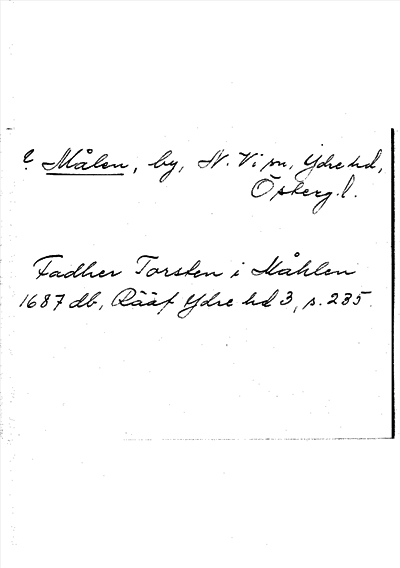 ? Målen, by, N. Vi sn, Ydre hd,
Österg. l.
Fadher Torsten i Måhlen
1687 db, Rääf Ydre hd 3, s. 235.